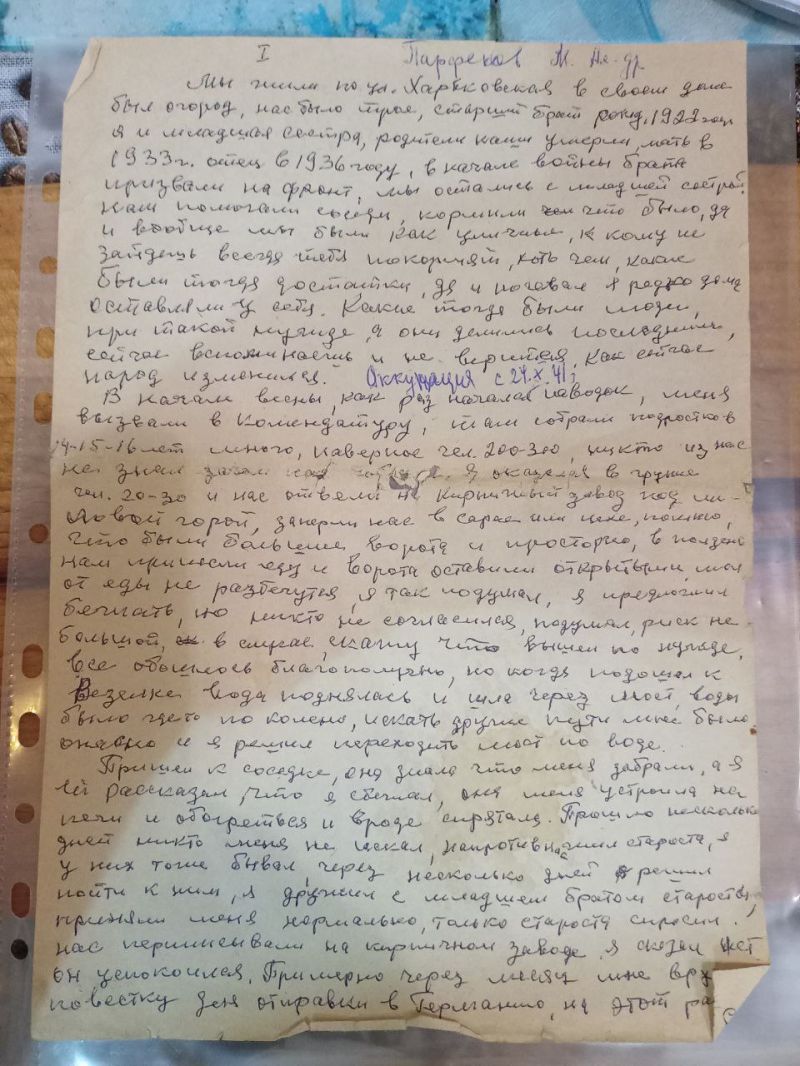 I Парфенов М.
Мы жили по ул. Харьковская в своем доме
был огород, нас было трое, старший брат рожд. 1922 года
я и младшая сестра, родители наши умерли, мать в
1933 г. отец в 1936 году, в начале войны брата
призвали на фронт, мы остались с младшей сестрой.
нам помогали соседи, кормили чем что было, да
и вообще мы были как уличные, к кому не
зайдешь всегда тебя покормят, хоть чем, какие
были тогда достатки, да и ночевал я редко дома
оставляли у себя. Какие тогда были люди,
при такой нужде, а они делились последним,
сейчас вспоминаешь и не верится, как сейчас
народ изменился. Оккупация с 24.X.41 г
В начале весны, как раз начался паводок, меня
вызвали в комендатуру, там собрали подростков
14-15-16 лет много, наверное чел. 200-300, никто из нас
не знал зачем нас Я оказался в группе
чел. 20-30 и нас отвели на кирпичный завод под ме-
ловой горой, заперли нас в сарае или цехе, помню,
что были большие ворота и просторно, в полдень
нам принесли еду и ворота оставили открытыми, мол
от еды не разбегутся, я так подумал, я предложил
бежать, но никто не согласился, подумал, риск не-
большой, в случае, скажу что вышел по нужде,
все обошлось благополучно, но когда подошел к
Везелке вода поднялась и шла через мост, воды
было где-то по колено, искать другие пути мне было
опасно и я решил переходить мост по воде.
Пришел к соседке, она знала что меня забрали, а я
ей рассказал, что я сбежал, она меня устроила на
печи и обогреться и вроде спрятала. Прошло несколько
дней никто меня не искал, напротив нас жил староста, я
у них тоже бывал, через несколько дней решил
пойти к ним, я дружил с младшем братом старосты,
приняли меня нормально, только староста спросил
нас переписывали на кирпичном заводе, я сказал нет
он успокоился. Примерно через месяц мне
повестку для отправки в Германию, на этот